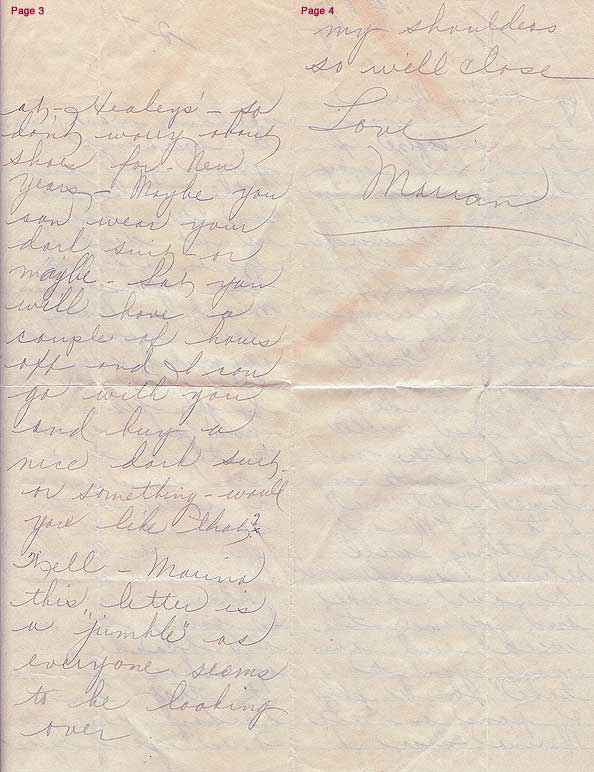 Page 3
at - Healeys' - so
dont worry about
shoes for - New
Years - Maybe you
can wear your
dark suit - or
maybe - Sat you
will have a
couple of hours
off and I can
go with you
and buy a
nice dark suit -
or something - would
you like that?
Well - Marino
this letter is
a "jumble" as
everyone seems
to be looking
over
Page 4
my shoulders
so will close
Love
Marian